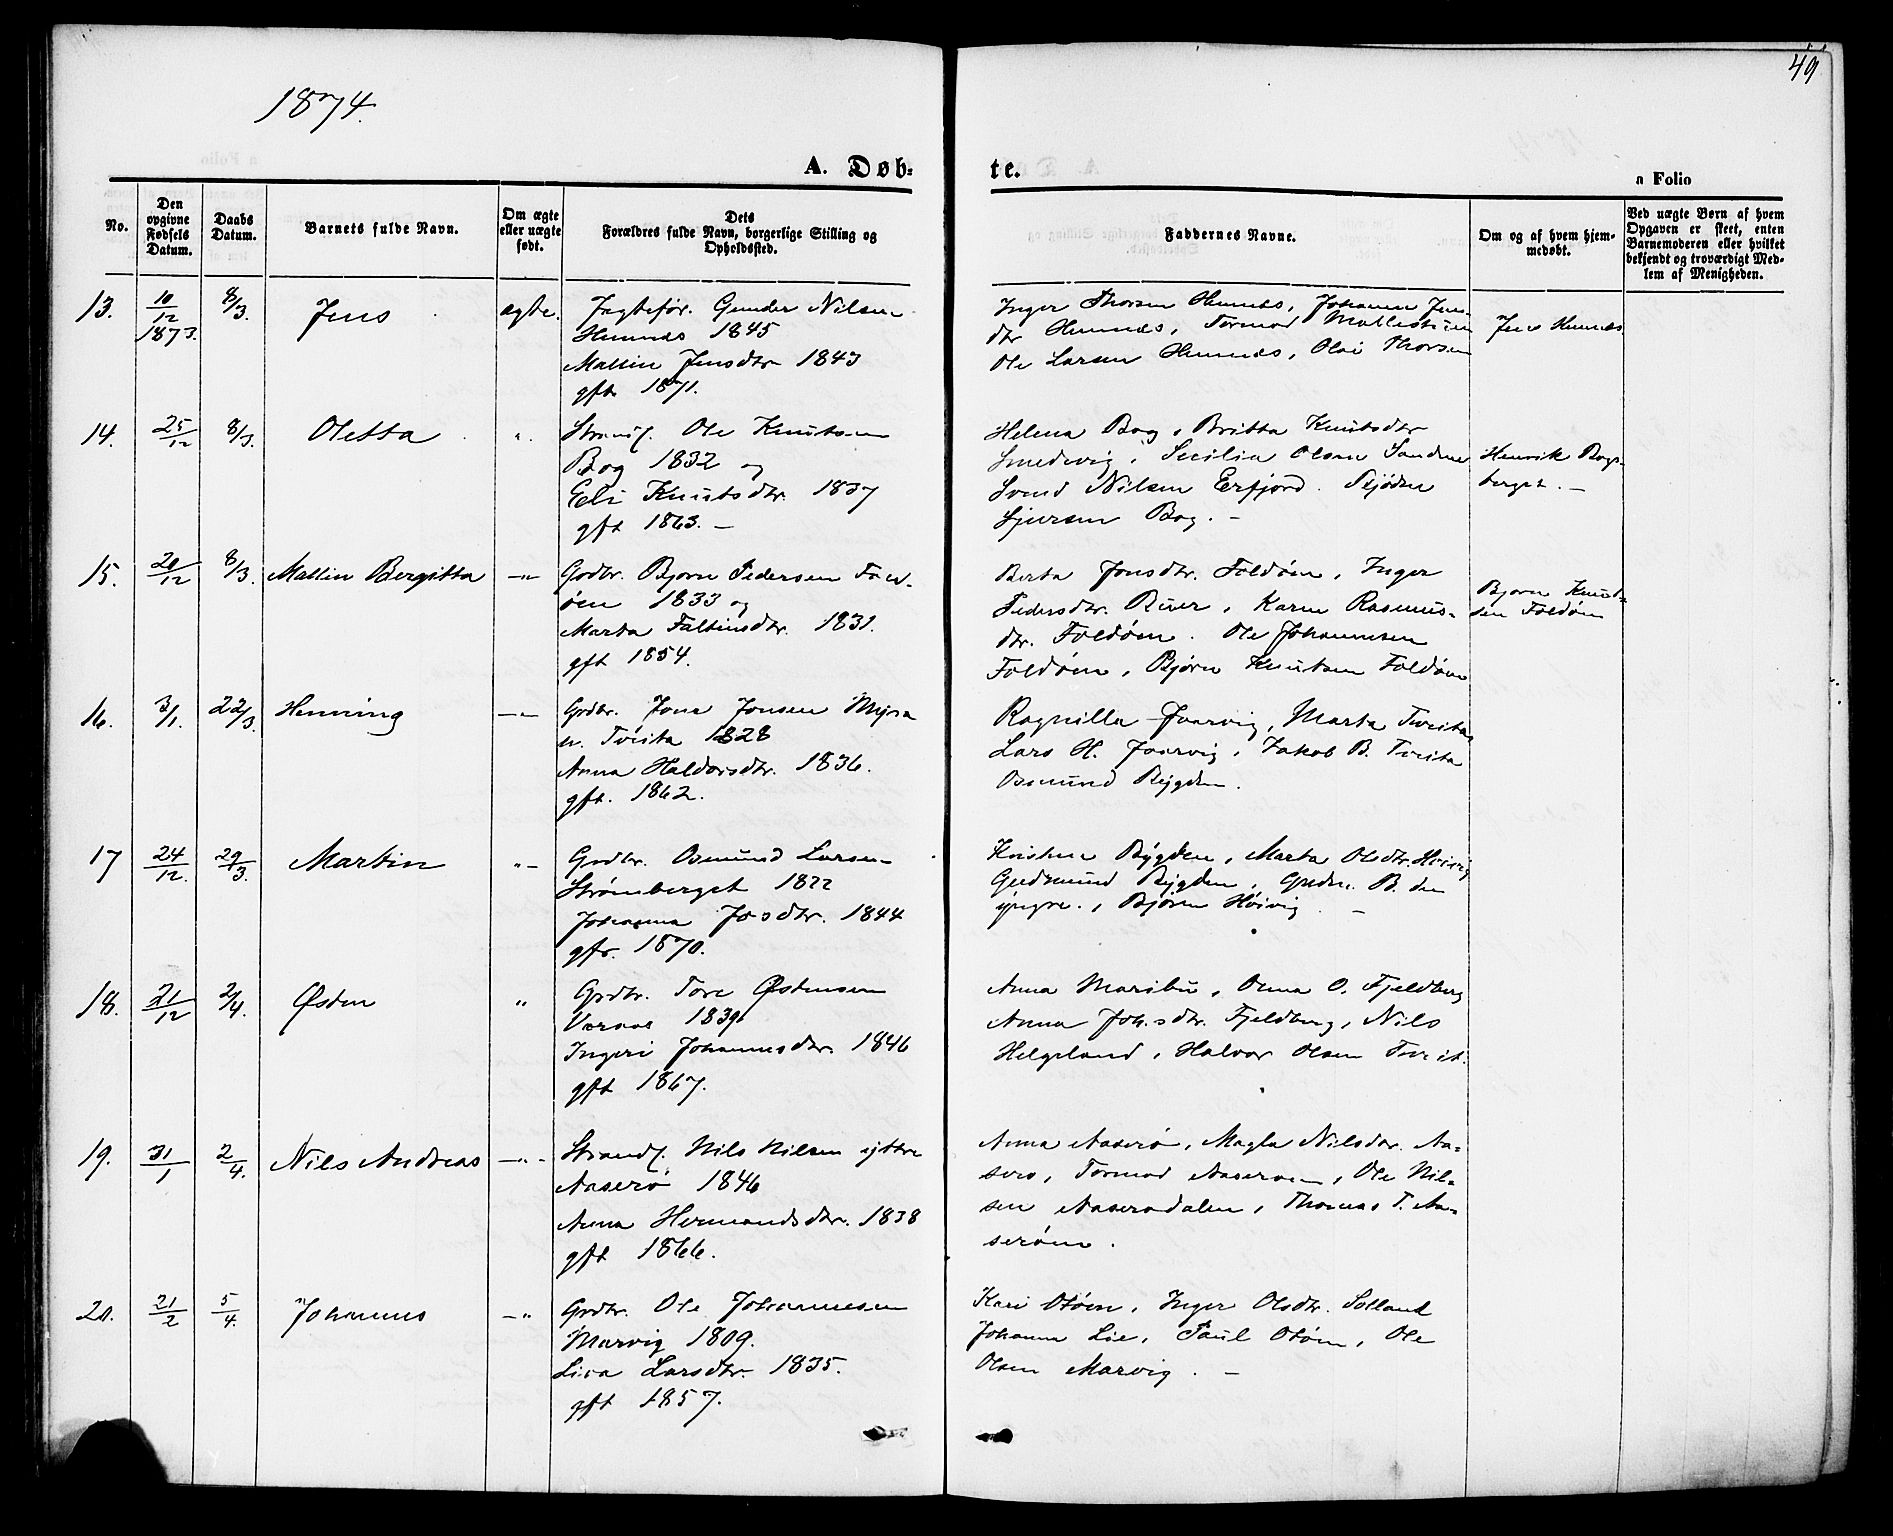 1874.
49
A. Døb-
te.
a Folio
No.
Den opgivne Fødsels Datum.
Daabs Datum.
Barnets fulde Navn.
Om ægte eller uægte født.
Dets Forældres fulde Navn, borgerlige Stilling og Opholdssted.
Faddernes Navne.
Om og af hvem hjemmedøbt.
Ved uægte Børn af hvem Opgaven er skeet, enten Barnemoderen eller hvilket bekjendt og troværdigt Medlem af Menigheden.
13.
10/12 1873.
8/3.
Jens
ægte.
Jagtefør. Gunder Nilsen
Hennes 1845
Mallin Jensdtr 1843
gft 1871.
Inger Thorsen Hennes, Johanna Jens-
dtr Hennes, Tormod
Ole Larsen Hennes, Oloi Thorsen
Jens Hennes
14.
25/12
8/3.
Oletta
Strands. Ole Knutsen
Bog 1832 og
Eli Knutsdtr. 1837
gft 1863. —
Helena Bog, Britta Knutsdtr
Smedvig, Secilia Olsen Sandnes
Svend Nilsen Erfjord.
Sjursen Bog. —
Henrik Bogs-
berget. —
15.
20/12
8/3.
Mallin Bergitta
Grdbr. Bjørn Pedersen Fold-
øen 1833 og
Marta Faltinsdtr. 1831.
gft 1854.
Berta Jonsdtr. Foldøen, Inger
Pedersdtr. River, Karen Rasmus-
dtr. Foldøen. Ole Johannesen
Foldøen, Bjørn Knutsen Foldøen
Bjørn Knut-
sen Foldøen
16.
3/1.
22/3.
Henning
Grdbr. Jone Jonsen Myra
u. Tveita 1828
Anna Haldorsdtr. 1836.
gft. 1862.
Ragnilla Jaarvig, Marta Tveita
Lars H. Jaarvig, Jakob B. Tveita
Osmund Bygden.
17
24/12.
29/3.
Martin
Grdbr. Osmund Larsen
Strømberget 1822
Johanna Josdtr. 1844
gft. 1870.
Kristine Bygden, Marta Olsdtr. Høivig
Gudmund Bygden, Gudm. B. den
yngre., Bjørn Høivig. —
18.
21/12
2/4.
Østen
Grdbr. Tore Østensen
1839
Ingeri Johannesdtr. 1846
gft 1867.
Anna Maribu, Anna O. Fjeldberg
Anna Joh.sdtr. Fjeldberg, Nils
Helgeland, Halvor Olsen Tveit.
19.
31/1
2/4.
Nils Andreas
Strands. Nils Nilsen yttre
Aaserø 1846
Anna Hermandsdtr. 1838
gft 1866.
Anna Aaserø, Magla Nilsdtr. Aa-
serø, Tormod Aaserøen, Ole Nil-
sen Aaserødalen, Thomas T. Aa-
serøen.
20.
21/2
5/4.
Johannes
Grdbr. Ole Johannesen
Marvig 1809.
Liva Larsdtr. 1835.
gft 1857.
Kari Otøen, Inger Olsdtr. Solland
Johanna Lie, Paul Otøen, Ole
Olsen Marvig. —